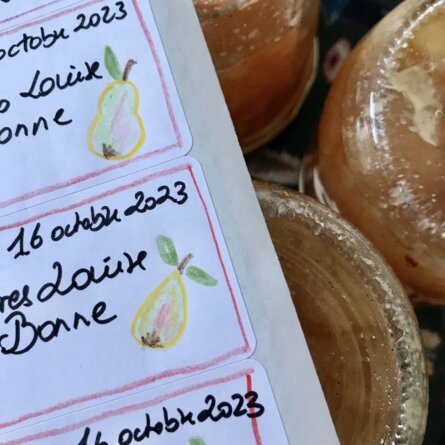 octobre 2023
Louise
onne
16 octobre 2023
res Louise
Bonne
16 octobre 2023